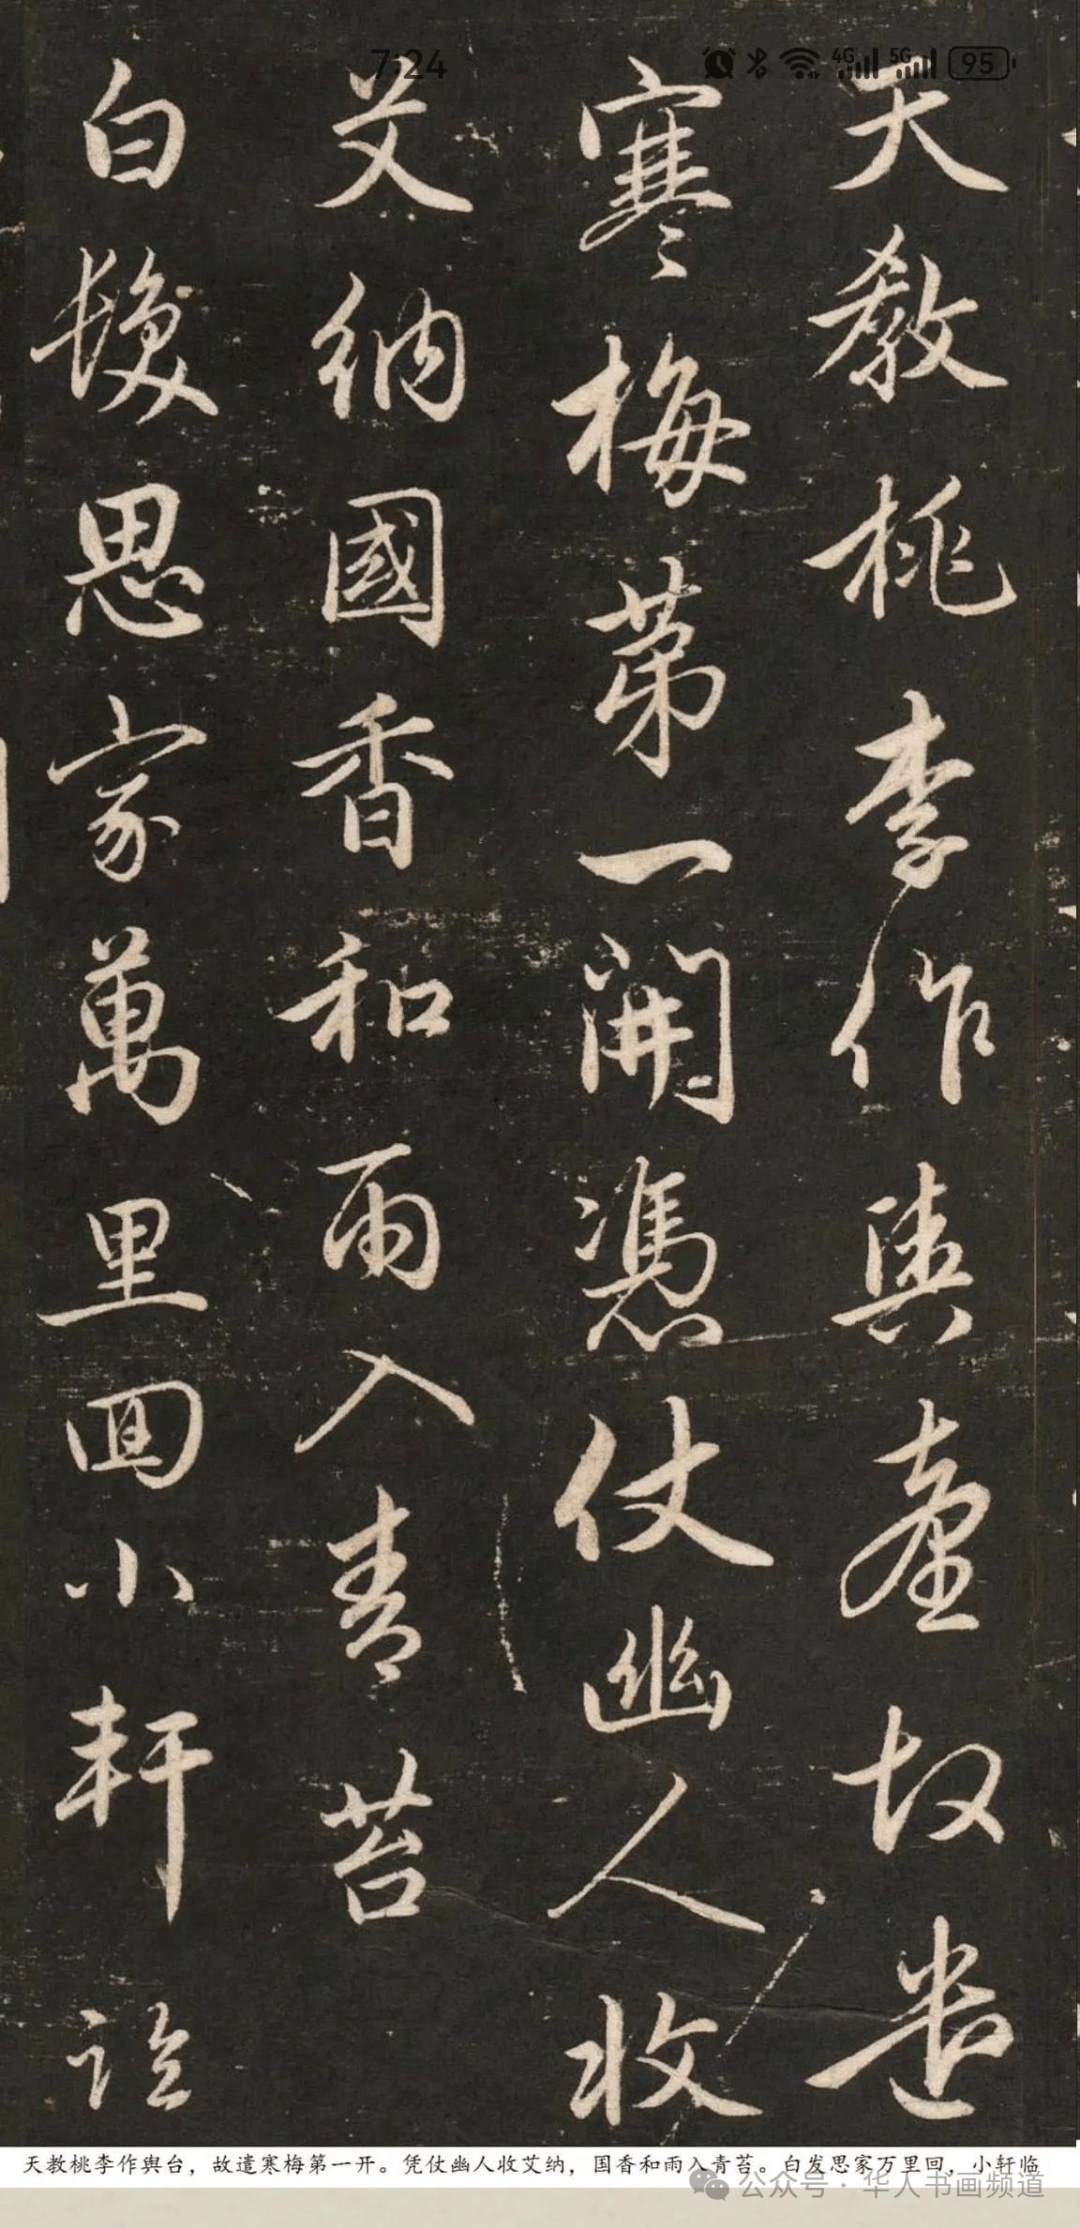 7:24 4G 5G 95
天教桃李作輿臺故遣
寒梅第一開憑仗幽人收
艾納國香和雨入青苔
白髮思家萬里回小軒臨
天教桃李作舆台，故遣寒梅第一开。凭仗幽人收艾纳，国香和雨入青苔。白发思家万里回，小轩临
公众号·华人书画频道